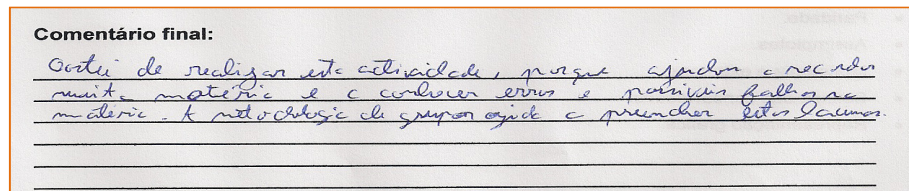 Comentário final:
Gostei de realizar esta actividade, porque ajudou a recordar
muita matéria e a conhecer erros e possíveis falhas na
matéria. A metodologia de grupos ajuda a preencher estas lacunas.